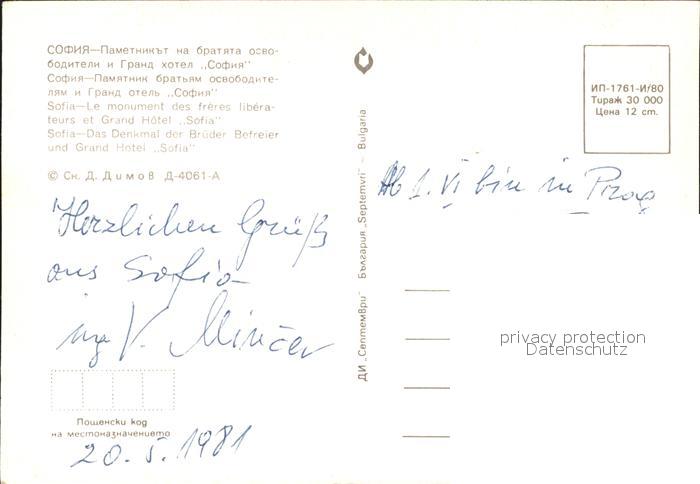 СОФИЯ—Паметникът на братята осво-
бодители и Гранд хотел „София"
София—Памятник братьям освободите-
лям и Гранд отель „София"
Sofia—Le monument des frères libéra-
teurs et Grand Hôtel „Sofia"
Sofia—Das Denkmal der Brüder Befreier
und Grand Hotel „Sofia"
© Сн. Д. Димов Д-4061-А
Herzlichen Grüß
aus Sofia
V. Minčev
Пощенски код
на местоназначението
20. 5. 1981
ДИ „Септември" България „Septemvri" – Bulgaria
ИП-1761-И/80
Тираж 30 000
Цена 12 ст.
Ab 1. VI bin in Prag
privacy protection
Datenschutz